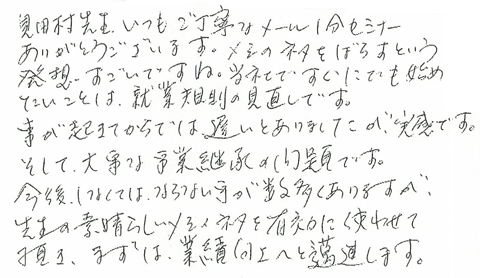 見田村先生、いつもご丁寧なメール1分セミナー
ありがとうございます。メモのネタをばらすという
発想、すごいですね。当社ですぐにでも始め
たいことは、就業規則の見直しです。
事が起きてからでは遅いとありましたが、実感です。
そして、大事な事業継承の問題です。
今後、しなくてはならない事が数多くありますが、
先生の素晴らしいメモネタを有効に使わせて
頂き、まずは、業績向上へと邁進します。